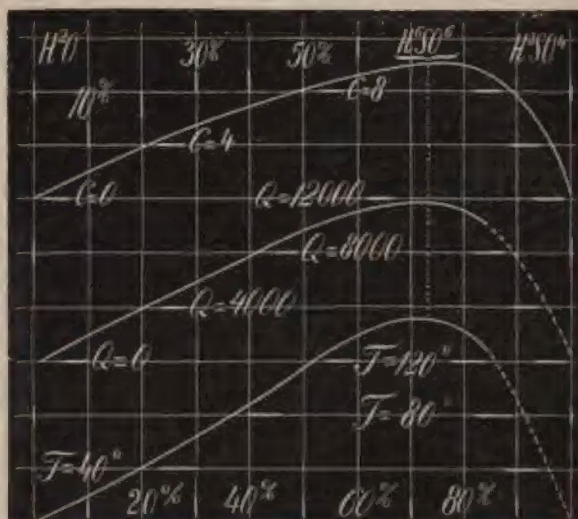 H²O 30% 50% H⁶SO⁶ H²SO⁴
10% C=8
C=4
C=0 Q=12000
Q=8000
Q=4000
Q=0 T=120°
T=80°
T=40°
20% 40% 60% 80%